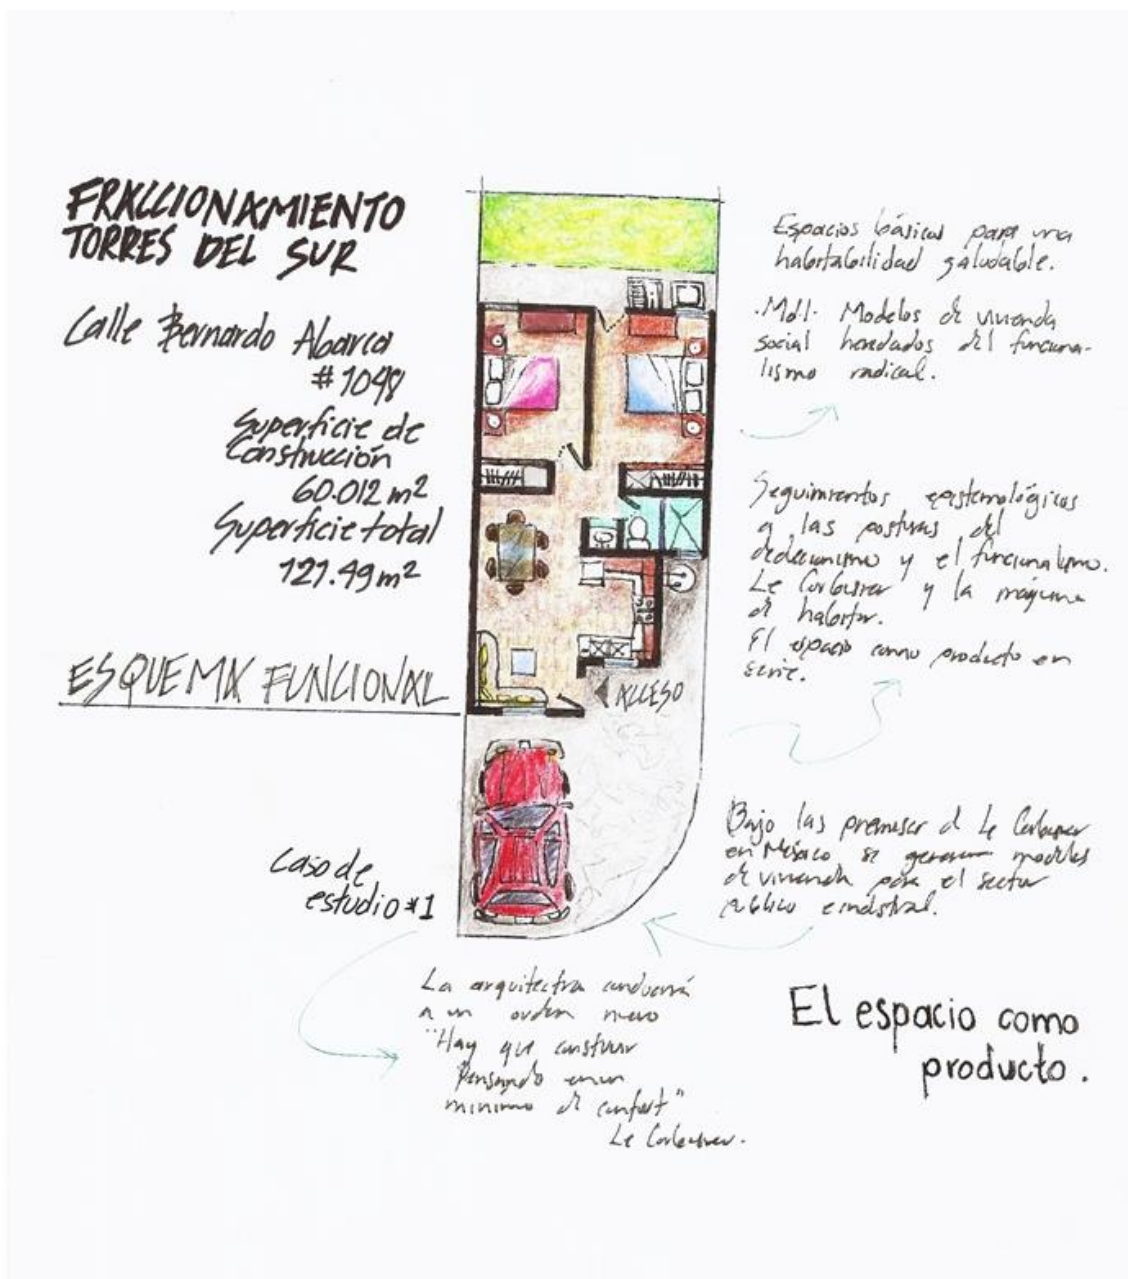 FRACCIONAMIENTO
TORRES DEL SUR
Calle Bernardo Abarca
#1048
Superficie de
Construcción
60.012 m2
Superficie total
121.49 m2
ESQUEMA FUNCIONAL
Caso de
estudio #1
ACCESO
Espacios básicos para una
habitabilidad saludable.
Modelos de vivienda
social heredados del funciona-
lismo radical.
Seguimientos epistemológicos
a las posturas del
y el funcionalismo.
Le Corbusier y la máquina
de habitar.
El espacio como producto en
serie.
Bajo las premisas d Le Corbusier
en México se generan modelos
de vivienda para el sector
público e industrial.
La arquitectura conducirá
a un orden nuevo
"Hay que construir
Pensando en un
minimo de confort"
Le Corbusier.
El espacio como
producto.